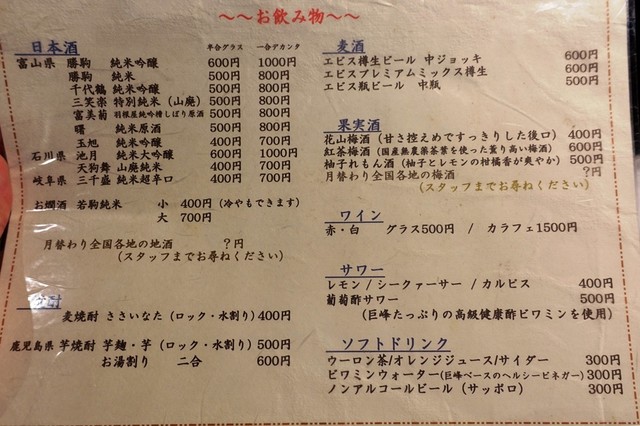 ～～お飲み物～～
日本酒 半合グラス 一合デカンタ
富山県 勝駒 純米吟醸 600円 1000円
勝駒 純米 500円 800円
千代鶴 純米吟醸 500円 800円
三笑楽 特別純米（山廃）500円 800円
富美菊 羽根屋純吟槽しぼり原酒 500円 800円
曙 純米原酒 500円 800円
玉旭 純米吟醸 400円 700円
石川県 池月 純米大吟醸 600円 1000円
天狗舞 山廃純米 500円 800円
岐阜県 三千盛 純米超辛口 400円 700円
お燗酒 若駒純米 小 400円（冷やもできます）
大 700円
月替わり全国各地の地酒 ？円
（スタッフまでお尋ねください）
酎
麦焼酎 ささいなた（ロック・水割り）400円
鹿児島県 芋焼酎 芋麹・芋（ロック・水割り）500円
お湯割り 二合 600円
麦酒
エビス樽生ビール 中ジョッキ 600円
エビスプレミアムミックス樽生 600円
エビス瓶ビール 中瓶 500円
果実酒
花山梅酒（甘さ控えめですっきりした後口）400円
紅茶梅酒（国産無農薬茶葉を使った薫り高い梅酒）600円
柚子れもん酒（柚子とレモンの柑橘香が爽やか）500円
月替わり全国各地の梅酒 ？円
（スタッフまでお尋ねください）
ワイン
赤・白 グラス500円 / カラフェ1500円
サワー
レモン / シークァーサー / カルピス 400円
葡萄酢サワー 500円
（巨峰たっぷりの高級健康酢ビワミンを使用）
ソフトドリンク
ウーロン茶/オレンジジュース/サイダー 300円
ビワミンウォーター（巨峰ベースのヘルシービネガー）300円
ノンアルコールビール（サッポロ） 300円